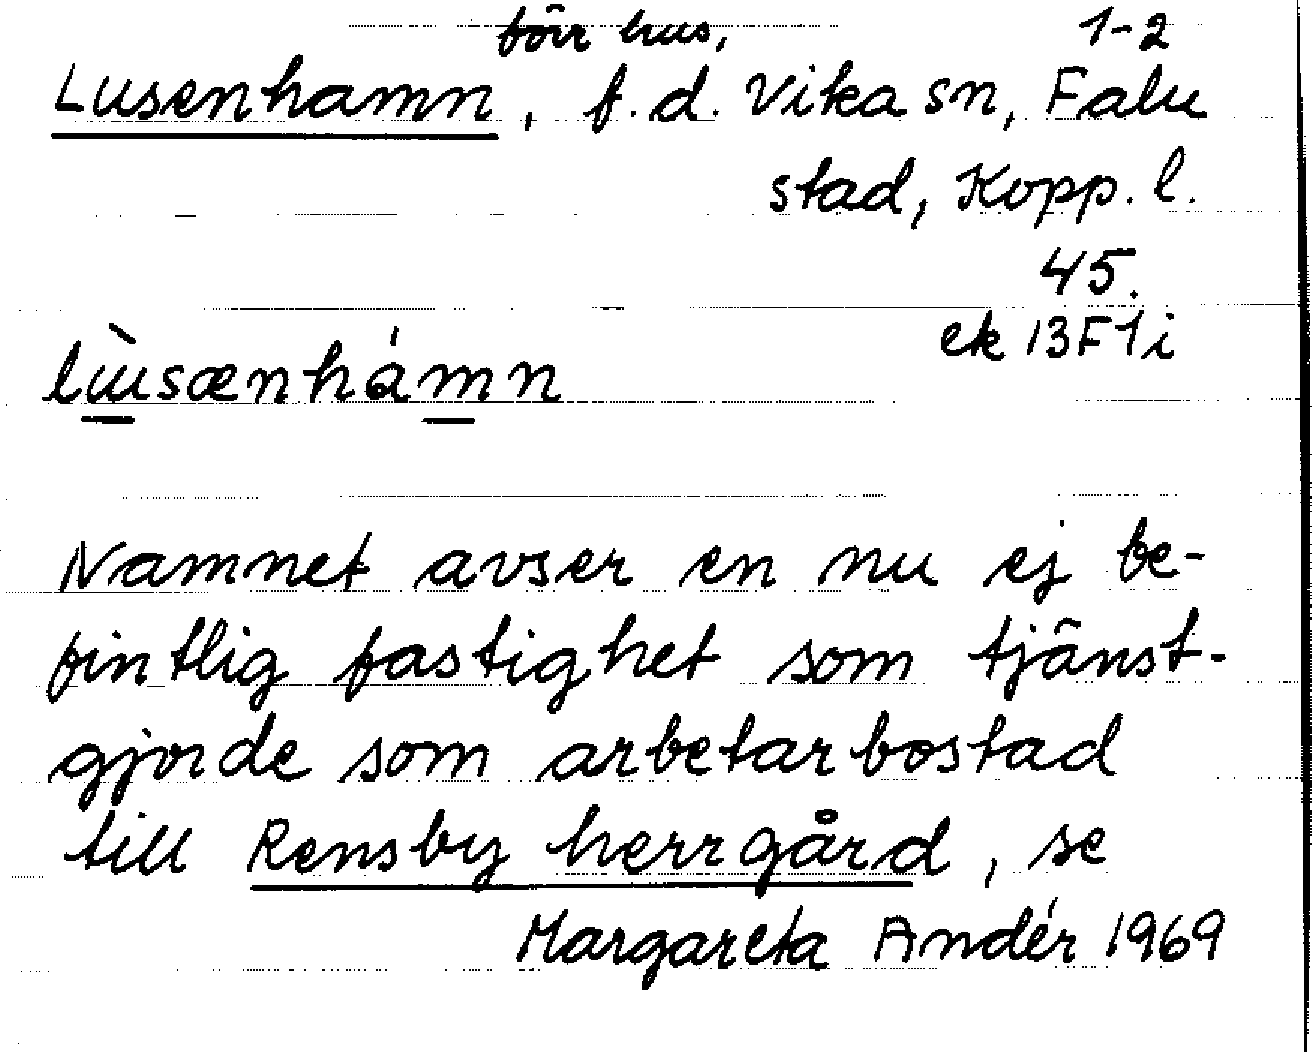 förr hus, 1-2
Lusenhamn, f.d. Vika sn, Falu
stad, Kopp. l.
45.
ek 13F1i
lùusænhámn
Namnet avser en nu ej be-
fintlig fastighet som tjänst-
gjorde som arbetarbostad
till Rensby herrgård, se
Margareta Andér 1969